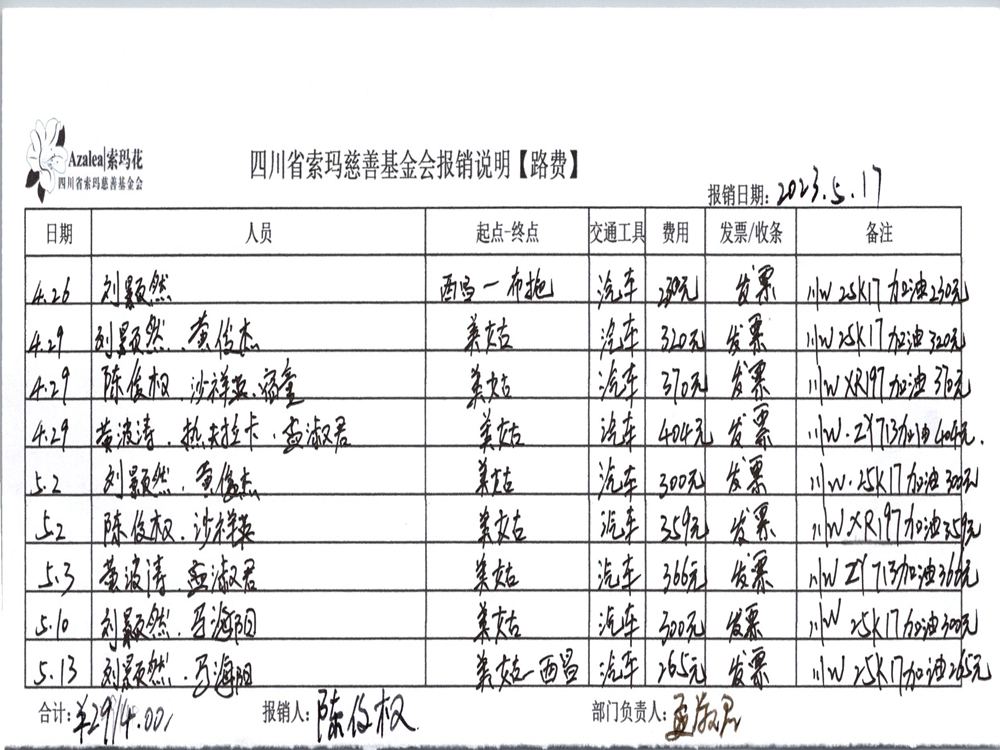 Azalea|索玛花
四川省索玛慈善基金会
四川省索玛慈善基金会报销说明【路费】
报销日期: 2023.5.17
日期 人员 起点-终点 交通工具 费用 发票/收条 备注
4.26 刘颖然 西昌—布拖 汽车 230元 发票 川W 25K17加油230元
4.29 刘颖然、黄俊杰 美姑 汽车 320元 发票 川W 25K17加油320元
4.29 陈俊权、沙祥英、 美姑 汽车 370元 发票 川W XR197加油370元
4.29 黄波涛、热夫拉卡、孟淑君 美姑 汽车 404元 发票 川W·ZY713加油404元.
5.2 刘颖然、黄俊杰 美姑 汽车 300元 发票 川W·25K17加油300元
5.2 陈俊权、沙祥英 美姑 汽车 359元 发票 川W XR197加油359元
5.3 黄波涛、孟淑君 美姑 汽车 366元 发票 川W ZY713加油366元
5.10 刘颖然、马海阳 美姑 汽车 300元 发票 川W 25K17加油300元
5.13 刘颖然、马海阳 美姑—西昌 汽车 265元 发票 川W 25K17加油265元
合计: ¥2914.00 报销人: 陈俊权 部门负责人: 孟淑君